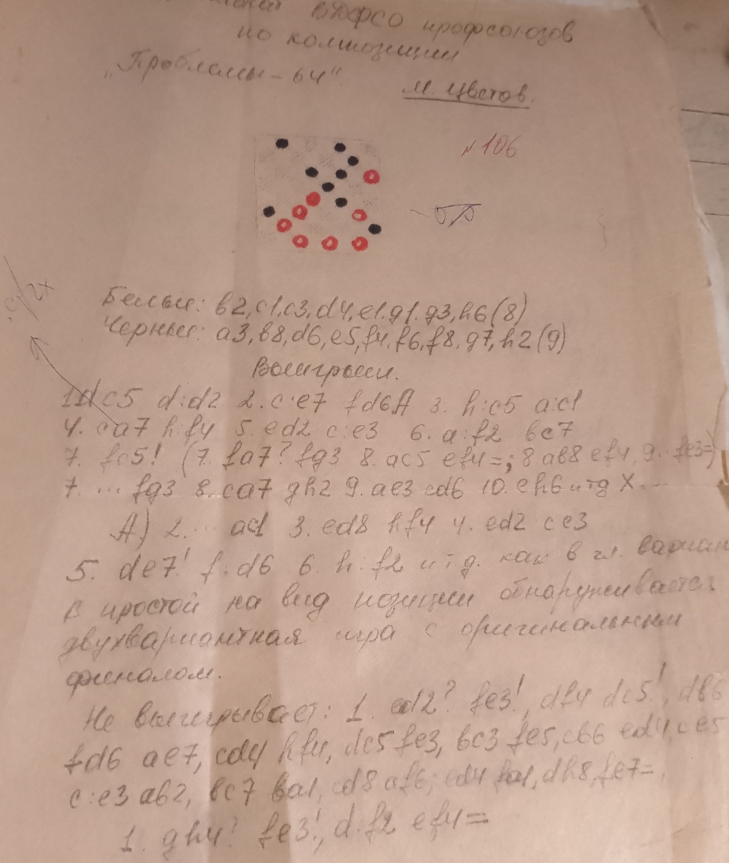 ВДФСО профсоюзов
по композиции
"Проблемы-64"
М. Цветов.
№106
Белые: b2, c1, c3, d4, e1, g1, g3, h6 (8)
Черные: a3, b8, d6, e5, f4, f6, f8, g7, h2 (9)
Выигрыш.
1. dc5 d:d2 2. c:e7 fd6A 3. h:c5 a:c1
4. ca7 h:f4 5. ed2 c:e3 6. a:f2 bc7
7. fc5! (7. fa7? fg3 8. ac5 ef4=; 8 ab8 ef4, 9. fe3=)
7. ... fg3 8. ca7 gh2 9. ae3 cd6 10. eh6 и тд X
A) 2. ... ac1 3. ed8 hf4 4. ed2 ce3
5. de7! f:d6 6. h:f2 и т.д. как в гл. вариан
В простой на вид позиции обнаруживается
двухвариантная игра с оригинальным
финалом.
Не выигрывает: 1. cd2? fe3!, df4 dc5!, db6
fd6 ae7, cd4 hf4, dc5 fe3, bc3 fe5, cb6 ed4, ce5
c:e3 ab2, bc7 ba1, cd8 af6; ed4 fa1, dh8, fe7=,
1. gh4? fe3!, d:f2 ef4=